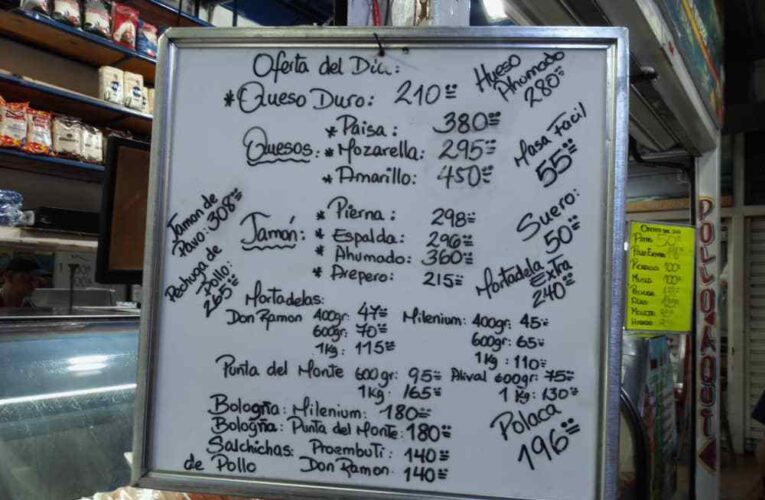 Oferta del Dia:
*Queso Duro: 210=
Hueso
Ahumado
280=
Quesos: *Paisa: 380=
*Mozarella: 295=
*Amarillo: 450=
Masa Facil
55=
Jamon de
Pavo: 308=
Pechuga de
Pollo:
265=
Jamón: *Pierna: 298=
*Espalda: 296=
*Ahumado: 360=
*Arepero: 215=
Suero:
50=
Mortadela
Extra
240=
Mortadelas:
Don Ramon 400gr: 47=
600gr: 70=
1Kg: 115=
Milenium: 400gr: 45=
600gr: 65=
1Kg: 110=
Punta del Monte 600gr: 95=
1Kg: 165=
Alival 600gr: 75=
1Kg: 130=
Bologña: Milenium: 180=
Bologña: Punta del Monte: 180=
Salchichas: Proembuti: 140=
de Pollo Don Ramon: 140=
Polaca
196=
POLLO AQUI